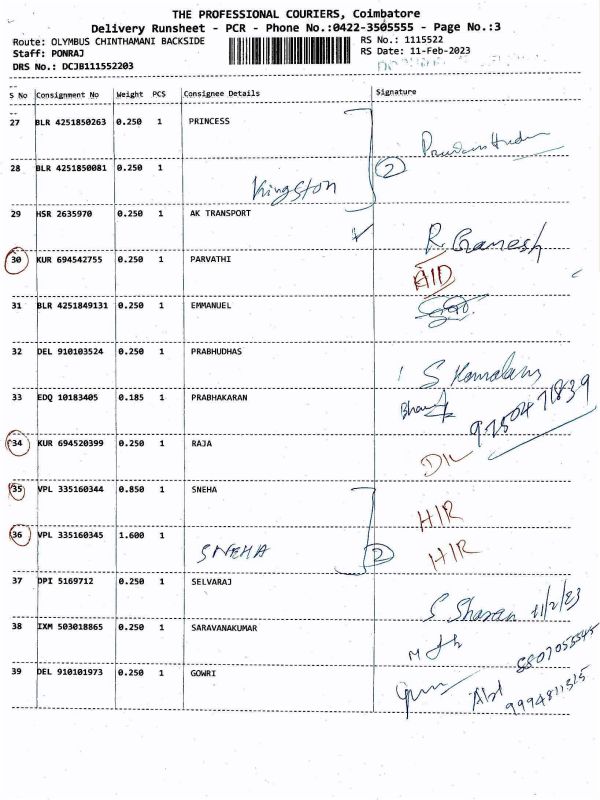 THE PROFESSIONAL COURIERS, Coimbatore
Delivery Runsheet - PCR - Phone No.:0422-3505555 - Page No.:3
Route: OLYMBUS CHINTHAMANI BACKSIDE RS No.: 1115522
Staff: PONRAJ RS Date: 11-Feb-2023
DRS No.: DCJB111552203
S No Consignment No Weight PCS Consignee Details Signature
27 BLR 4251850263 0.250 1 PRINCESS
28 BLR 4251850081 0.250 1 2
Kingston
29 HSR 2635970 0.250 1 AK TRANSPORT
R. Ganesh
30 KUR 694542755 0.250 1 PARVATHI
AID
31 BLR 4251849131 0.250 1 EMMANUEL
32 DEL 910103524 0.250 1 PRABHUDHAS
S Kamalam
33 EDQ 10183405 0.185 1 PRABHAKARAN
34 KUR 694520399 0.250 1 RAJA
35 VPL 335160344 0.850 1 SNEHA
HIR
36 VPL 335160345 1.600 1
SNEHA 2 HIR
37 DPI 5169712 0.250 1 SELVARAJ
S Sharan 11/2/23
38 IXM 503018865 0.250 1 SARAVANAKUMAR
39 DEL 910101973 0.250 1 GOWRI